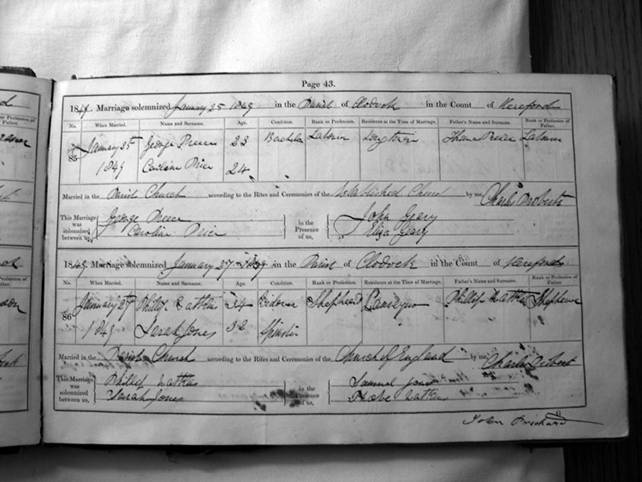 Page 43.
1849. Marriage solemnized January 25 1849 in the Parish of Clodock in the Count of Hereford
No. When Married. Name and Surname. Age. Condition. Rank or Profession. Residence at the Time of Marriage. Father's Name and Surname. Rank or Profession of Father.
85 January 25th George Preece 23 Bachelor Labourer Longtown Thomas Preece Labourer
1849 Caroline Price 24
Married in the Parish Church according to the Rites and Ceremonies of the Established Church by me, Charles
This Marriage was solemnized between us, George Preece Caroline Price in the Presence of us, John Geary Eliza Geary
1849. Marriage solemnized January 27 1849 in the Parish of Clodock in the Count of Hereford
No. When Married. Name and Surname. Age. Condition. Rank or Profession. Residence at the Time of Marriage. Father's Name and Surname. Rank or Profession of Father.
86 January 27 Philip Watkins 34 Shepherd Phillip Watkins Shepherd
1849 Sarah Jones 32 Spinster
Married in the Parish Church according to the Rites and Ceremonies of the Church of England by me, Charles
This Marriage was solemnized between us, Phillip Watkins Sarah Jones in the Presence of us, Samuel Watkins
John Prichard